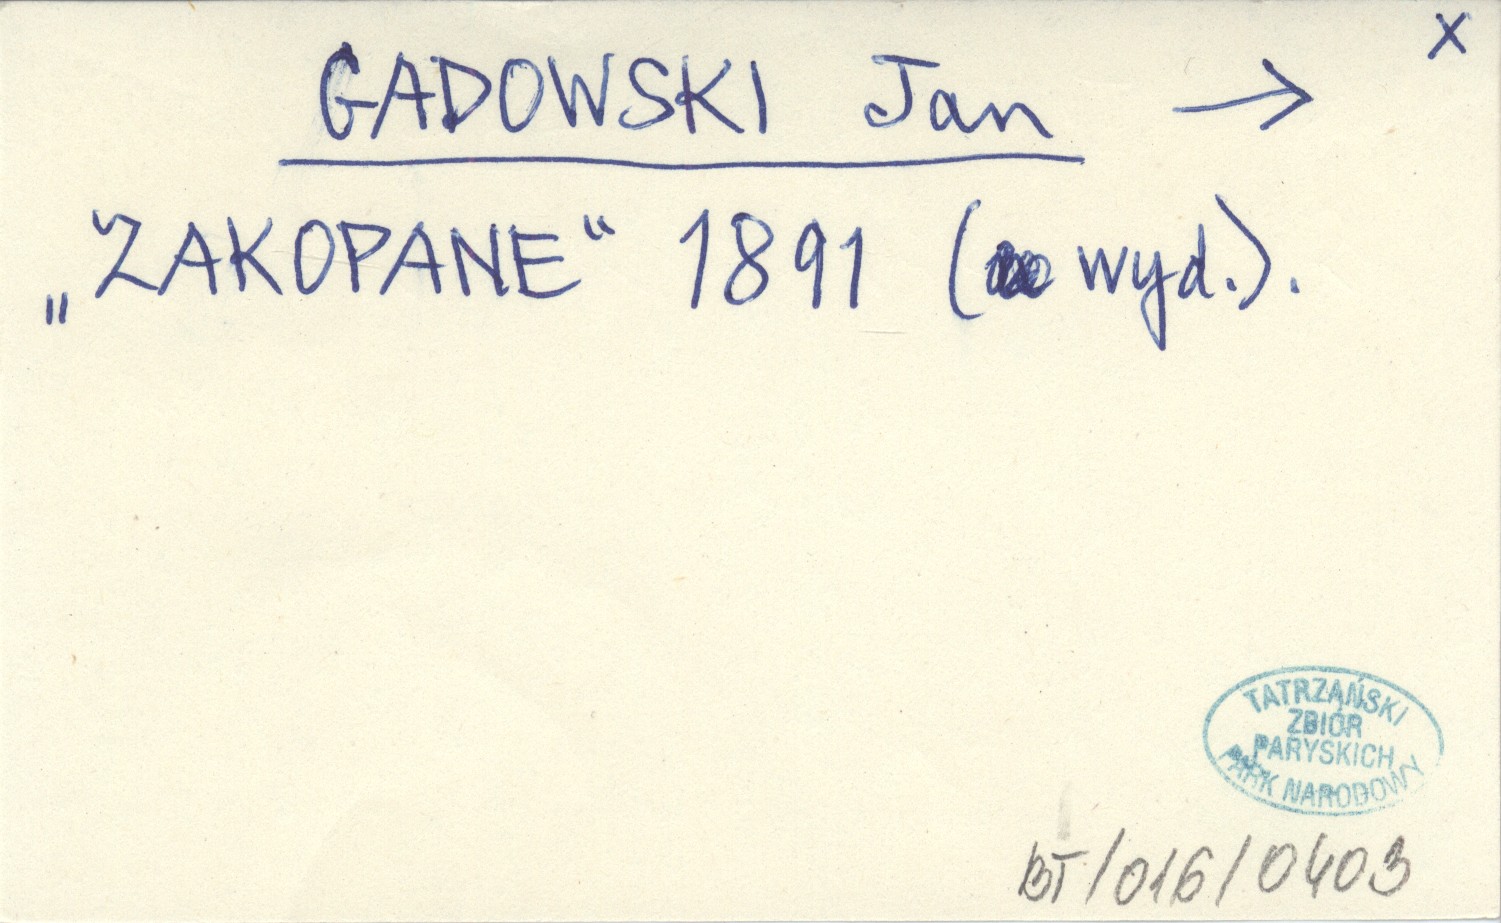 x
GADOWSKI Jan →
„ZAKOPANE“ 1891 ( wyd.).
TATRZAŃSKI
ZBIÓR
PARYSKICH
PARK NARODOWY
BT/016/0403